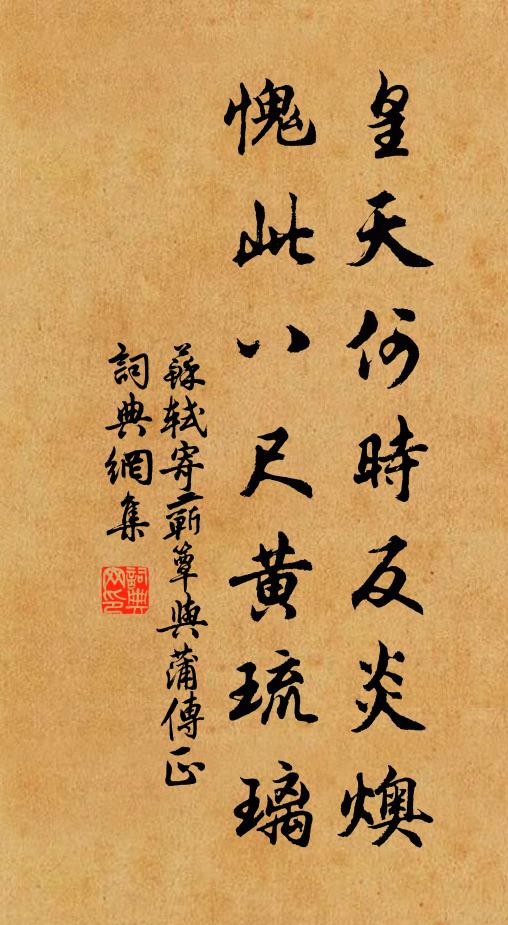 皇天何時反炎燠
愧此八尺黄琉璃
蘇軾寄蘄簟與蒲傳正
詞典網集
詞典
网印